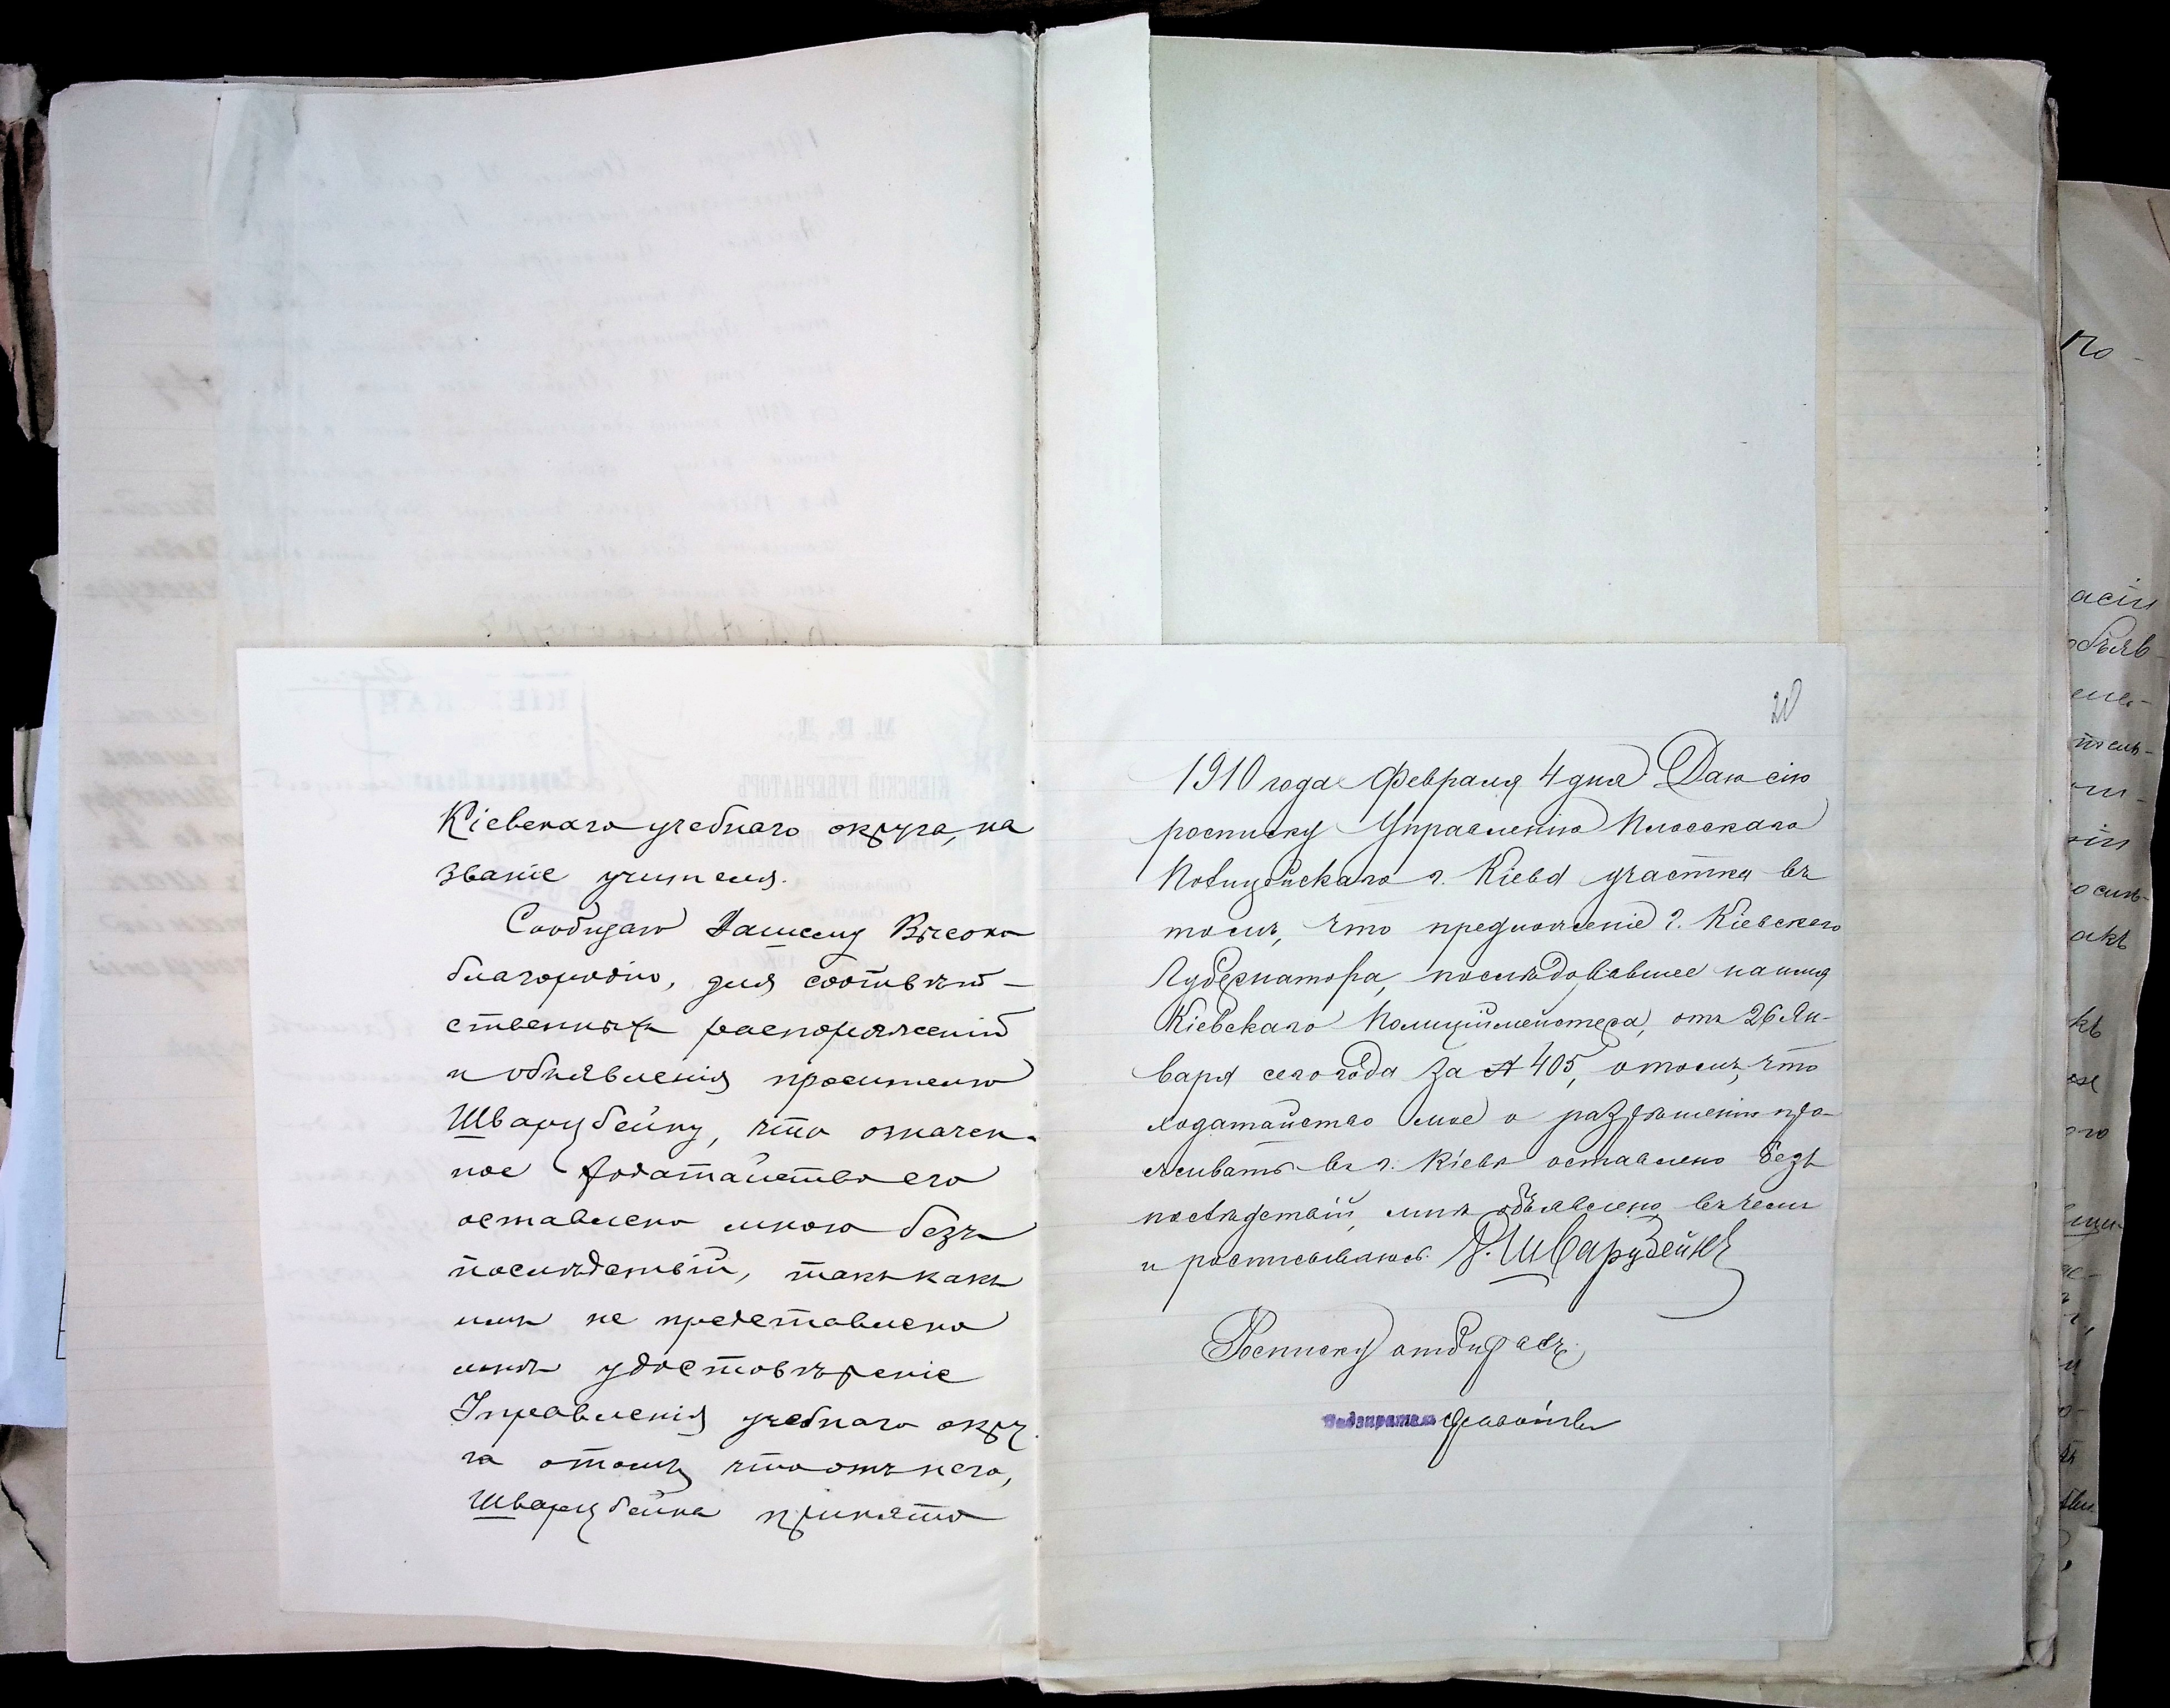 Кіевскаго учебнаго округа, на
званіе учителя.
Сообщаю Вашему Высоко
благородію, для соотвѣт-
ственныхъ распоряженій
и объявленія просителю
Шварцбейну, что означен-
ное ходатайство его
оставлено мною безъ
послѣдствій, такъ какъ
имъ не представлено
мнѣ удостовѣреніе
Управленія учебнаго окру
га о томъ, что отъ него,
Шварцбейна принято
20
1910 года Февраля 4 дня Даю сію
росписку Управленію Плосскаго
Полицейскаго г. Кіева участка въ
томъ, что предложеніе г. Кіевскаго
Губернатора, послѣдовавшее на имя
Кіевскаго Полиціймейстера, отъ 26 Ян-
варя сего года за № 405, о томъ, что
ходатайство мое о разрѣшеніи про-
живать въ г. Кіевѣ оставлено безъ
послѣдствій, мнѣ объявлено въ чемъ
и росписываюсь. Шварцбейнъ
Росписку отбиралъ
Надзиратель